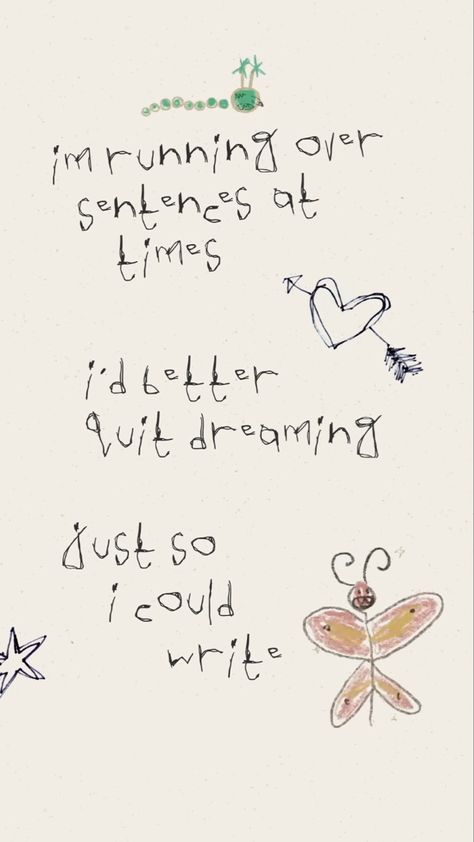 im running over
sentences at
times
i'd better
quit dreaming
just so
i could
write